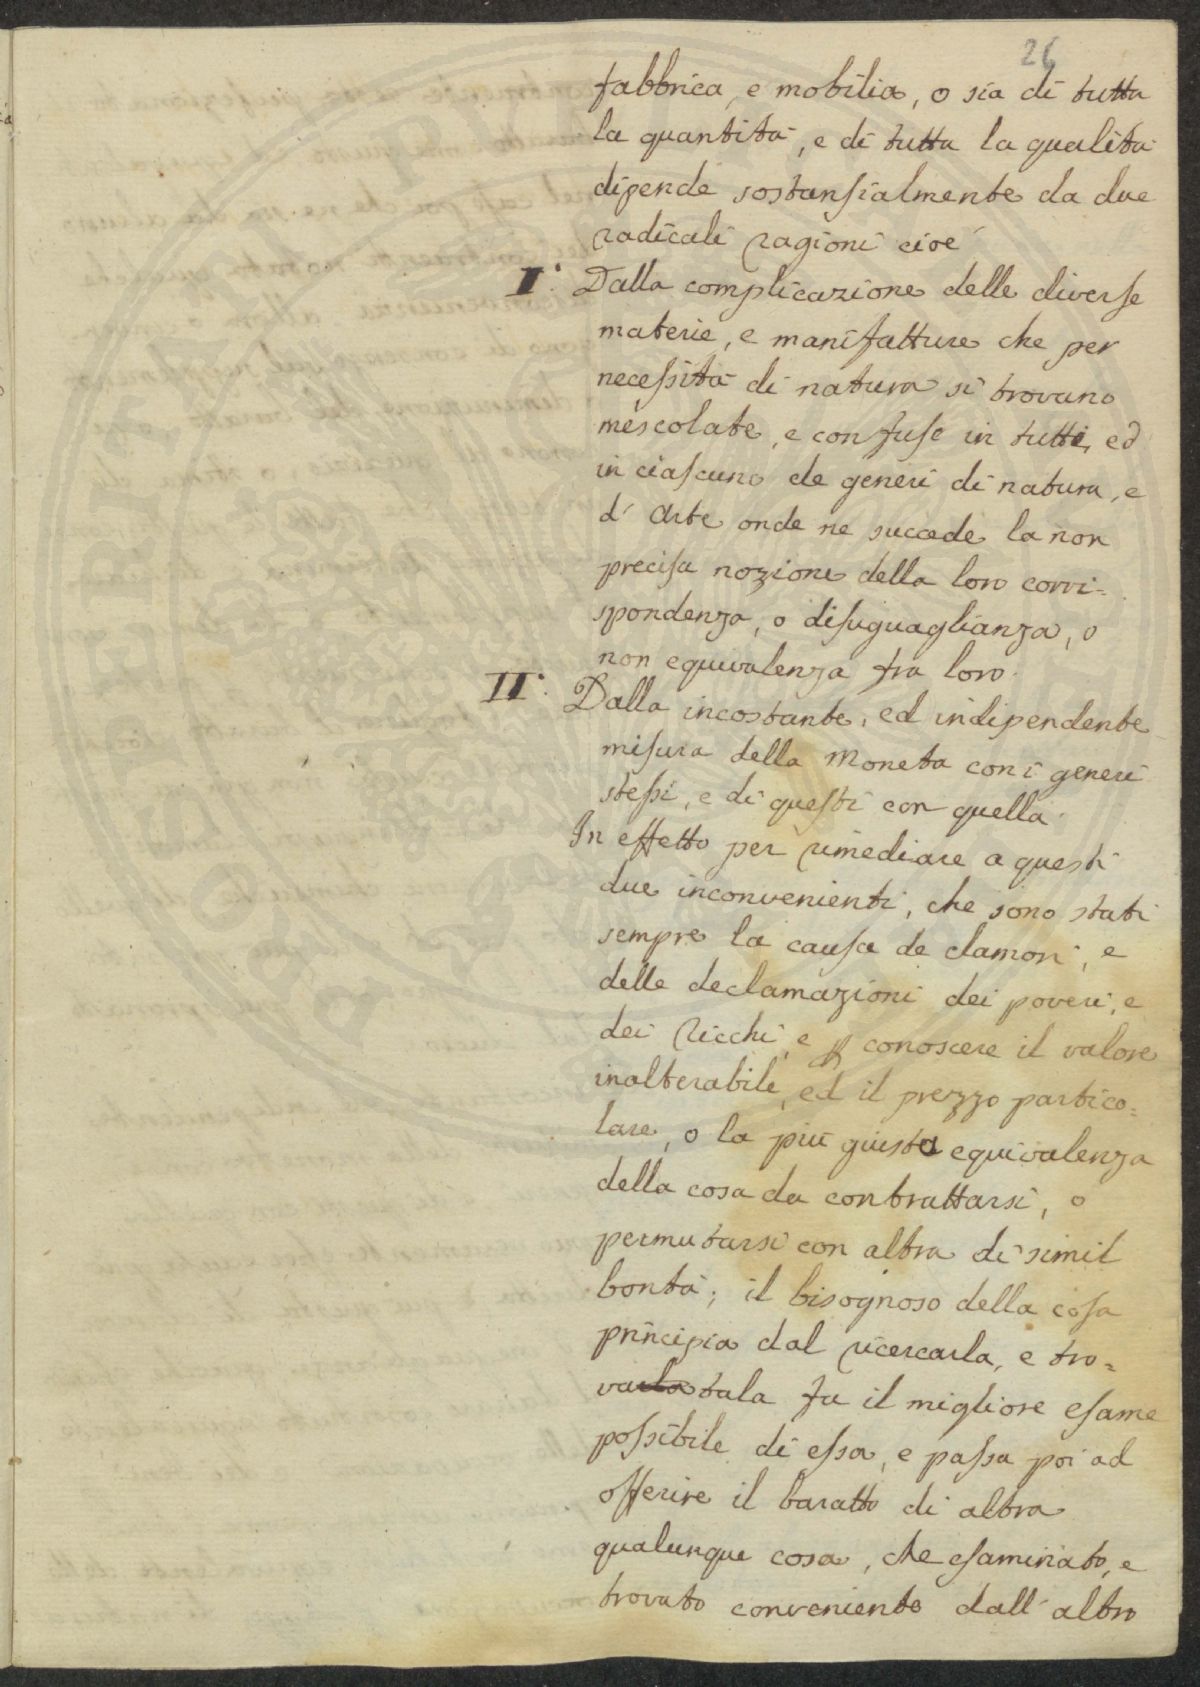 26
fabbrica, e mobilia, o sia di tutta
la quantità, e di tutta la qualità
dipende sostansialmente da due
radicali ragioni cioè
I. Dalla complicazione delle diverse
materie, e manifatture che per
necessità di natura si trovano
mescolate, e confuse in tutti, ed
in ciascuno de generi di natura, e
d'Arte onde ne succede la non
precisa nozione della loro corri=
spondenza, o disuguaglianza, o
non equivalenza fra loro.
II. Dalla incostante, ed indipendente
misura della Moneta con i generi
stessi, e di questi con quella.
In effetto per rimediare a questi
due inconvenienti, che sono stati
sempre la causa de clamori, e
delle declamazioni dei poveri, e
dei Ricchi, e conoscere il valore
inalterabile, ed il prezzo partico=
lare, o la più giusta equivalenza
della cosa da contrattarsi, o
permutarsi con altra di simil
bontà; il bisognoso della cosa
principia dal ricercarla, e tro=
vatala fa il migliore esame
possibile di essa, e passa poi ad
offerire il baratto di altra
qualunque cosa, che esaminato, e
trovato conveniente dall'altro